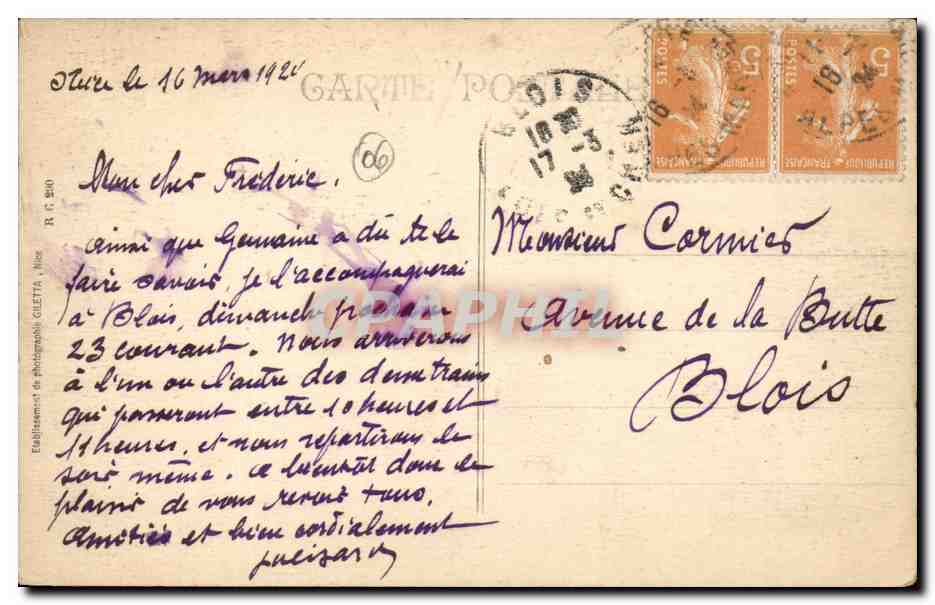 Nice le 16 Mars 192
CARTE POSTALE
06
Mon cher Fréderic,
Ainsi que Germaine a dû te le
faire savoir, je l'accompagnerai
à Blois, dimanche prochain
23 courant. Nous arriverons
à l'un ou l'autre des deux trains
qui passeront entre 10 heures et
11 heures, et nous repartirons le
soir même. A bientôt donc le
plaisir de vous revoir tous,
Amitiés et bien cordialement
Monsieur Cormier
Avenue de la Butte
Blois
BLOIS
18
17 -3
5
POSTES
REPUBLIQUE FRANÇAISE
5
POSTES
REPUBLIQUE FRANÇAISE
18
ALPES M
R C 290
Etablissement de photographie GILETTA - Nice
CPAPHIL